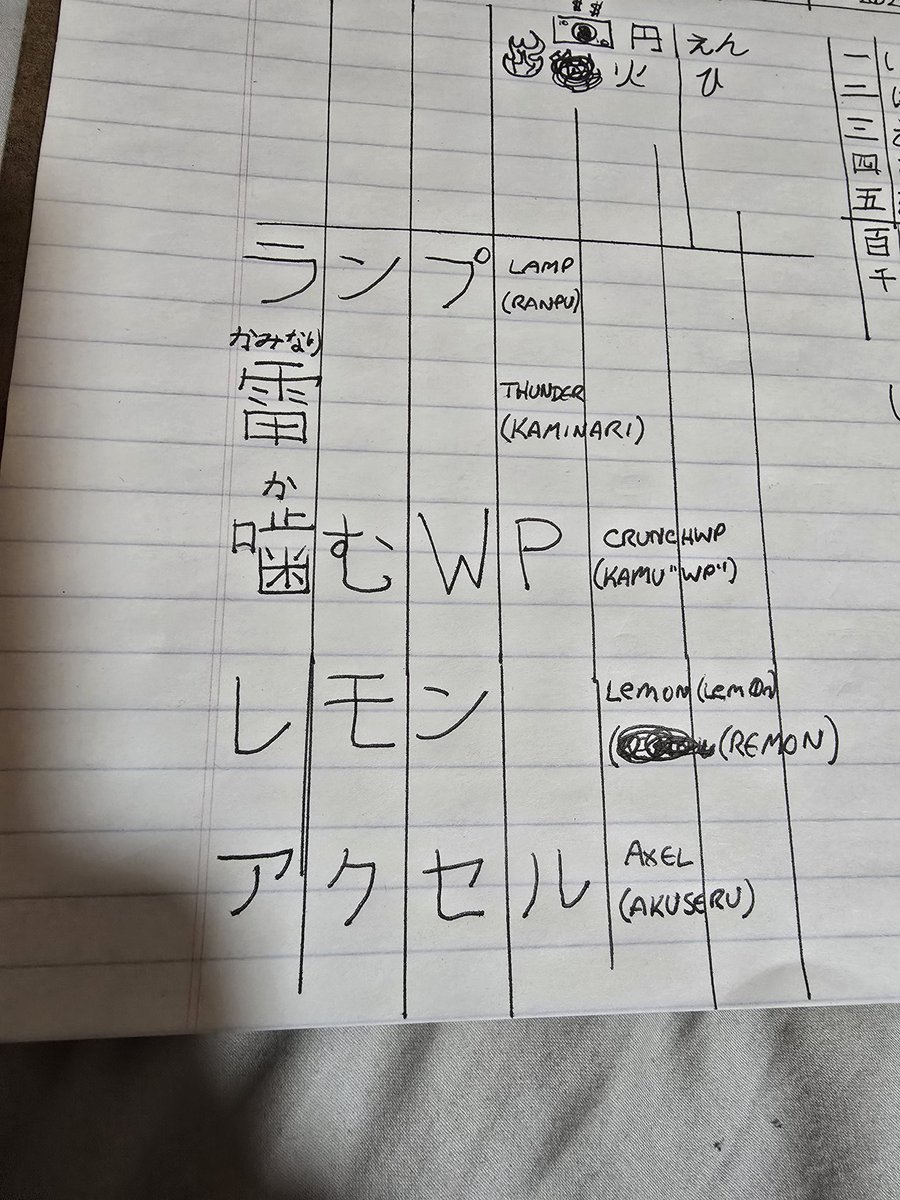 $ $
10
円 えん
火 ひ
一
二
三
四
五
百
千
ランプ LAMP
(RANPU)
かみなり
雷 THUNDER
(KAMINARI)
か
噛むWP CRUNCHWP
(KAMU "WP")
レモン Lemon (Lemon)
(REMON)
アクセル AXEL
(AKUSERU)